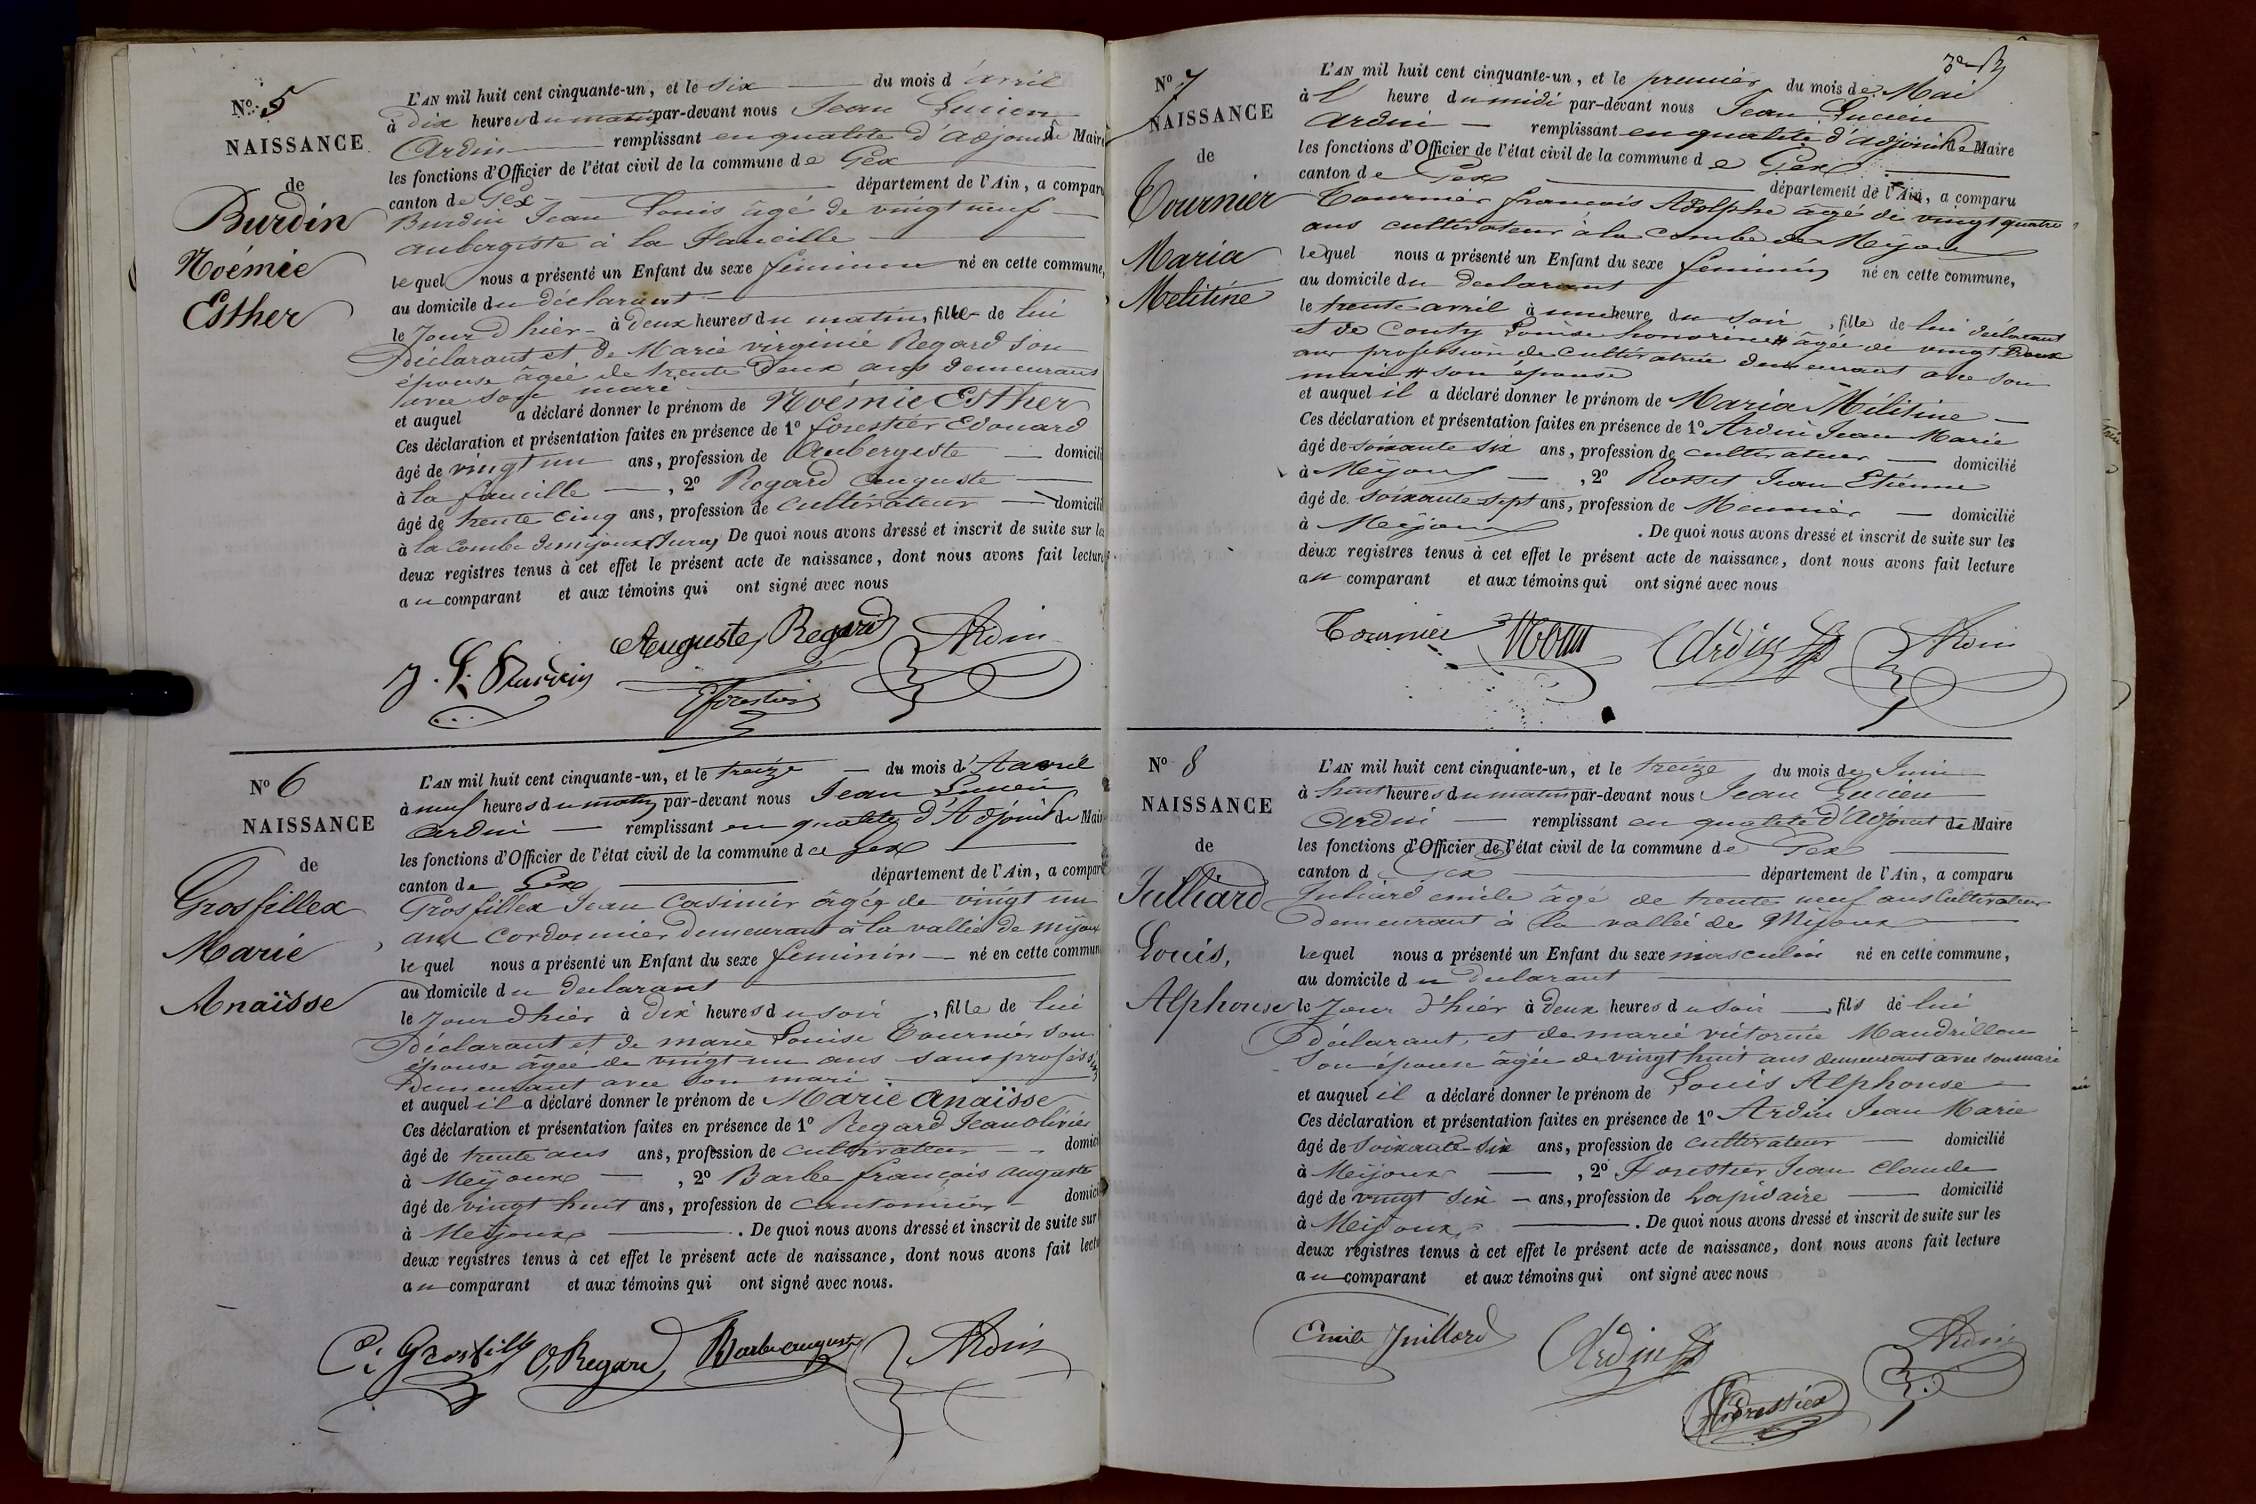 No 5
NAISSANCE
de
Burdin
Noémie
Esther
L'AN mil huit cent cinquante-un, et le six du mois d'avril
à dix heures du matin par-devant nous Jean Lucien
Ardin remplissant en qualité d'adjoint de Maire
les fonctions d'Officier de l'état civil de la commune de Gex
canton de Gex département de l'Ain, a comparu
Burdin Jean Louis âgé de vingt neuf
aubergiste à la Faucille
lequel nous a présenté un Enfant du sexe féminin né en cette commune,
au domicile du déclarant
le Jour d'hier à deux heures du matin, fille de lui
Déclarant et de Marie virginie Regard son
épouse âgée de trente deux ans demeurant
avec son mari
et auquel a déclaré donner le prénom de Noémie Esther
Ces déclaration et présentation faites en présence de 1º forestier Edouard
âgé de vingt un ans, profession de Aubergiste domicili
à la faucille , 2º Regard auguste
âgé de trente cinq ans, profession de cultivateur domicili
à la Combe de mijoux (Jura) De quoi nous avons dressé et inscrit de suite sur les
deux registres tenus à cet effet le présent acte de naissance, dont nous avons fait lecture
au comparant et aux témoins qui ont signé avec nous
Auguste Regard Ardin
J. L. Burdin
E forestier
No 6
NAISSANCE
de
Grosfillex
Marie
Anaïsse
L'AN mil huit cent cinquante-un, et le treize du mois d'Aavril
à neuf heures du matin par-devant nous Jean Lucien
Ardin remplissant en qualité d'Adjoint de Mair
les fonctions d'Officier de l'état civil de la commune de Gex
canton de Gex département de l'Ain, a comparu
Grosfillex Jean Casimir âgé de vingt un
ans cordonnier demeurant à la vallée de mijoux
lequel nous a présenté un Enfant du sexe féminin né en cette commun
au domicile du declarant
le Jour d'hier à dix heures du soir , fille de lui
Déclarant et de marie Louise Tournier son
épouse âgée de vingt un ans sans profession
Demeurant avec son mari
et auquel il a déclaré donner le prénom de Marie Anaïsse
Ces déclaration et présentation faites en présence de 1º Regard Jean olivier
âgé de trente ans ans, profession de cultivateur domici
à Meijoux , 2º Barbe françois auguste
âgé de vingt huit ans, profession de cantonnier domici
à Meijoux . De quoi nous avons dressé et inscrit de suite sur
deux registres tenus à cet effet le présent acte de naissance, dont nous avons fait lectu
au comparant et aux témoins qui ont signé avec nous.
C. Grosfille O. Regard Barbe auguste Ardin
No 7
NAISSANCE
de
Tournier
Maria
Melitine
L'AN mil huit cent cinquante-un, et le premier du mois de Mai
à 1 heure du midi par-devant nous Jean Lucien
Ardin remplissant en qualité d'adjoint de Maire
les fonctions d'Officier de l'état civil de la commune de Gex
canton de Gex département de l'Ain, a comparu
Tournier françois Adolphe âgé de vingt quatre
ans cultivateur à la Combe de Mijoux
lequel nous a présenté un Enfant du sexe feminin né en cette commune,
au domicile du declarant
le trente avril à une heure du soir , fille de lui déclarant
et de Conty Louise honorine # âgée de vingt Deux
ans profession de cultivatrice demeurant avec son
mari # son épouse
et auquel il a déclaré donner le prénom de Maria Mélitine
Ces déclaration et présentation faites en présence de 1º Ardin Jean Marie
âgé de soixante six ans, profession de cultivateur domicilié
à Meijoux , 2º Rosset Jean Etienne
âgé de soixante sept ans, profession de Meunier domicilié
à Meijoux . De quoi nous avons dressé et inscrit de suite sur les
deux registres tenus à cet effet le présent acte de naissance, dont nous avons fait lecture
au comparant et aux témoins qui ont signé avec nous
Tournier Ardin Ardin
No 8
NAISSANCE
de
Julliard
Louis,
Alphonse
L'AN mil huit cent cinquante-un, et le treize du mois de Juin
à huit heures du matin par-devant nous Jean Lucien
Ardin remplissant en qualité d'Adjoint de Maire
les fonctions d'Officier de l'état civil de la commune de Gex
canton d Gex département de l'Ain, a comparu
Julliard emile âgé de trente neuf ans Cultivateur
demeurant à la vallée de Mijoux
lequel nous a présenté un Enfant du sexe masculin né en cette commune,
au domicile du declarant
le Jour d'hier à deux heures du soir , fils de lui
déclarant, et de marie victorine Mandrillon
son épouse âgée de vingt huit ans demeurant avec son mari
et auquel il a déclaré donner le prénom de Louis Alphonse
Ces déclaration et présentation faites en présence de 1º Ardin Jean Marie
âgé de soixante six ans, profession de cultivateur domicilié
à Meijoux , 2º Forestier Jean Claude
âgé de vingt six ans, profession de Lapidaire domicilié
à Meijoux . De quoi nous avons dressé et inscrit de suite sur les
deux registres tenus à cet effet le présent acte de naissance, dont nous avons fait lecture
au comparant et aux témoins qui ont signé avec nous
Emile Juillard Ardin Ardin